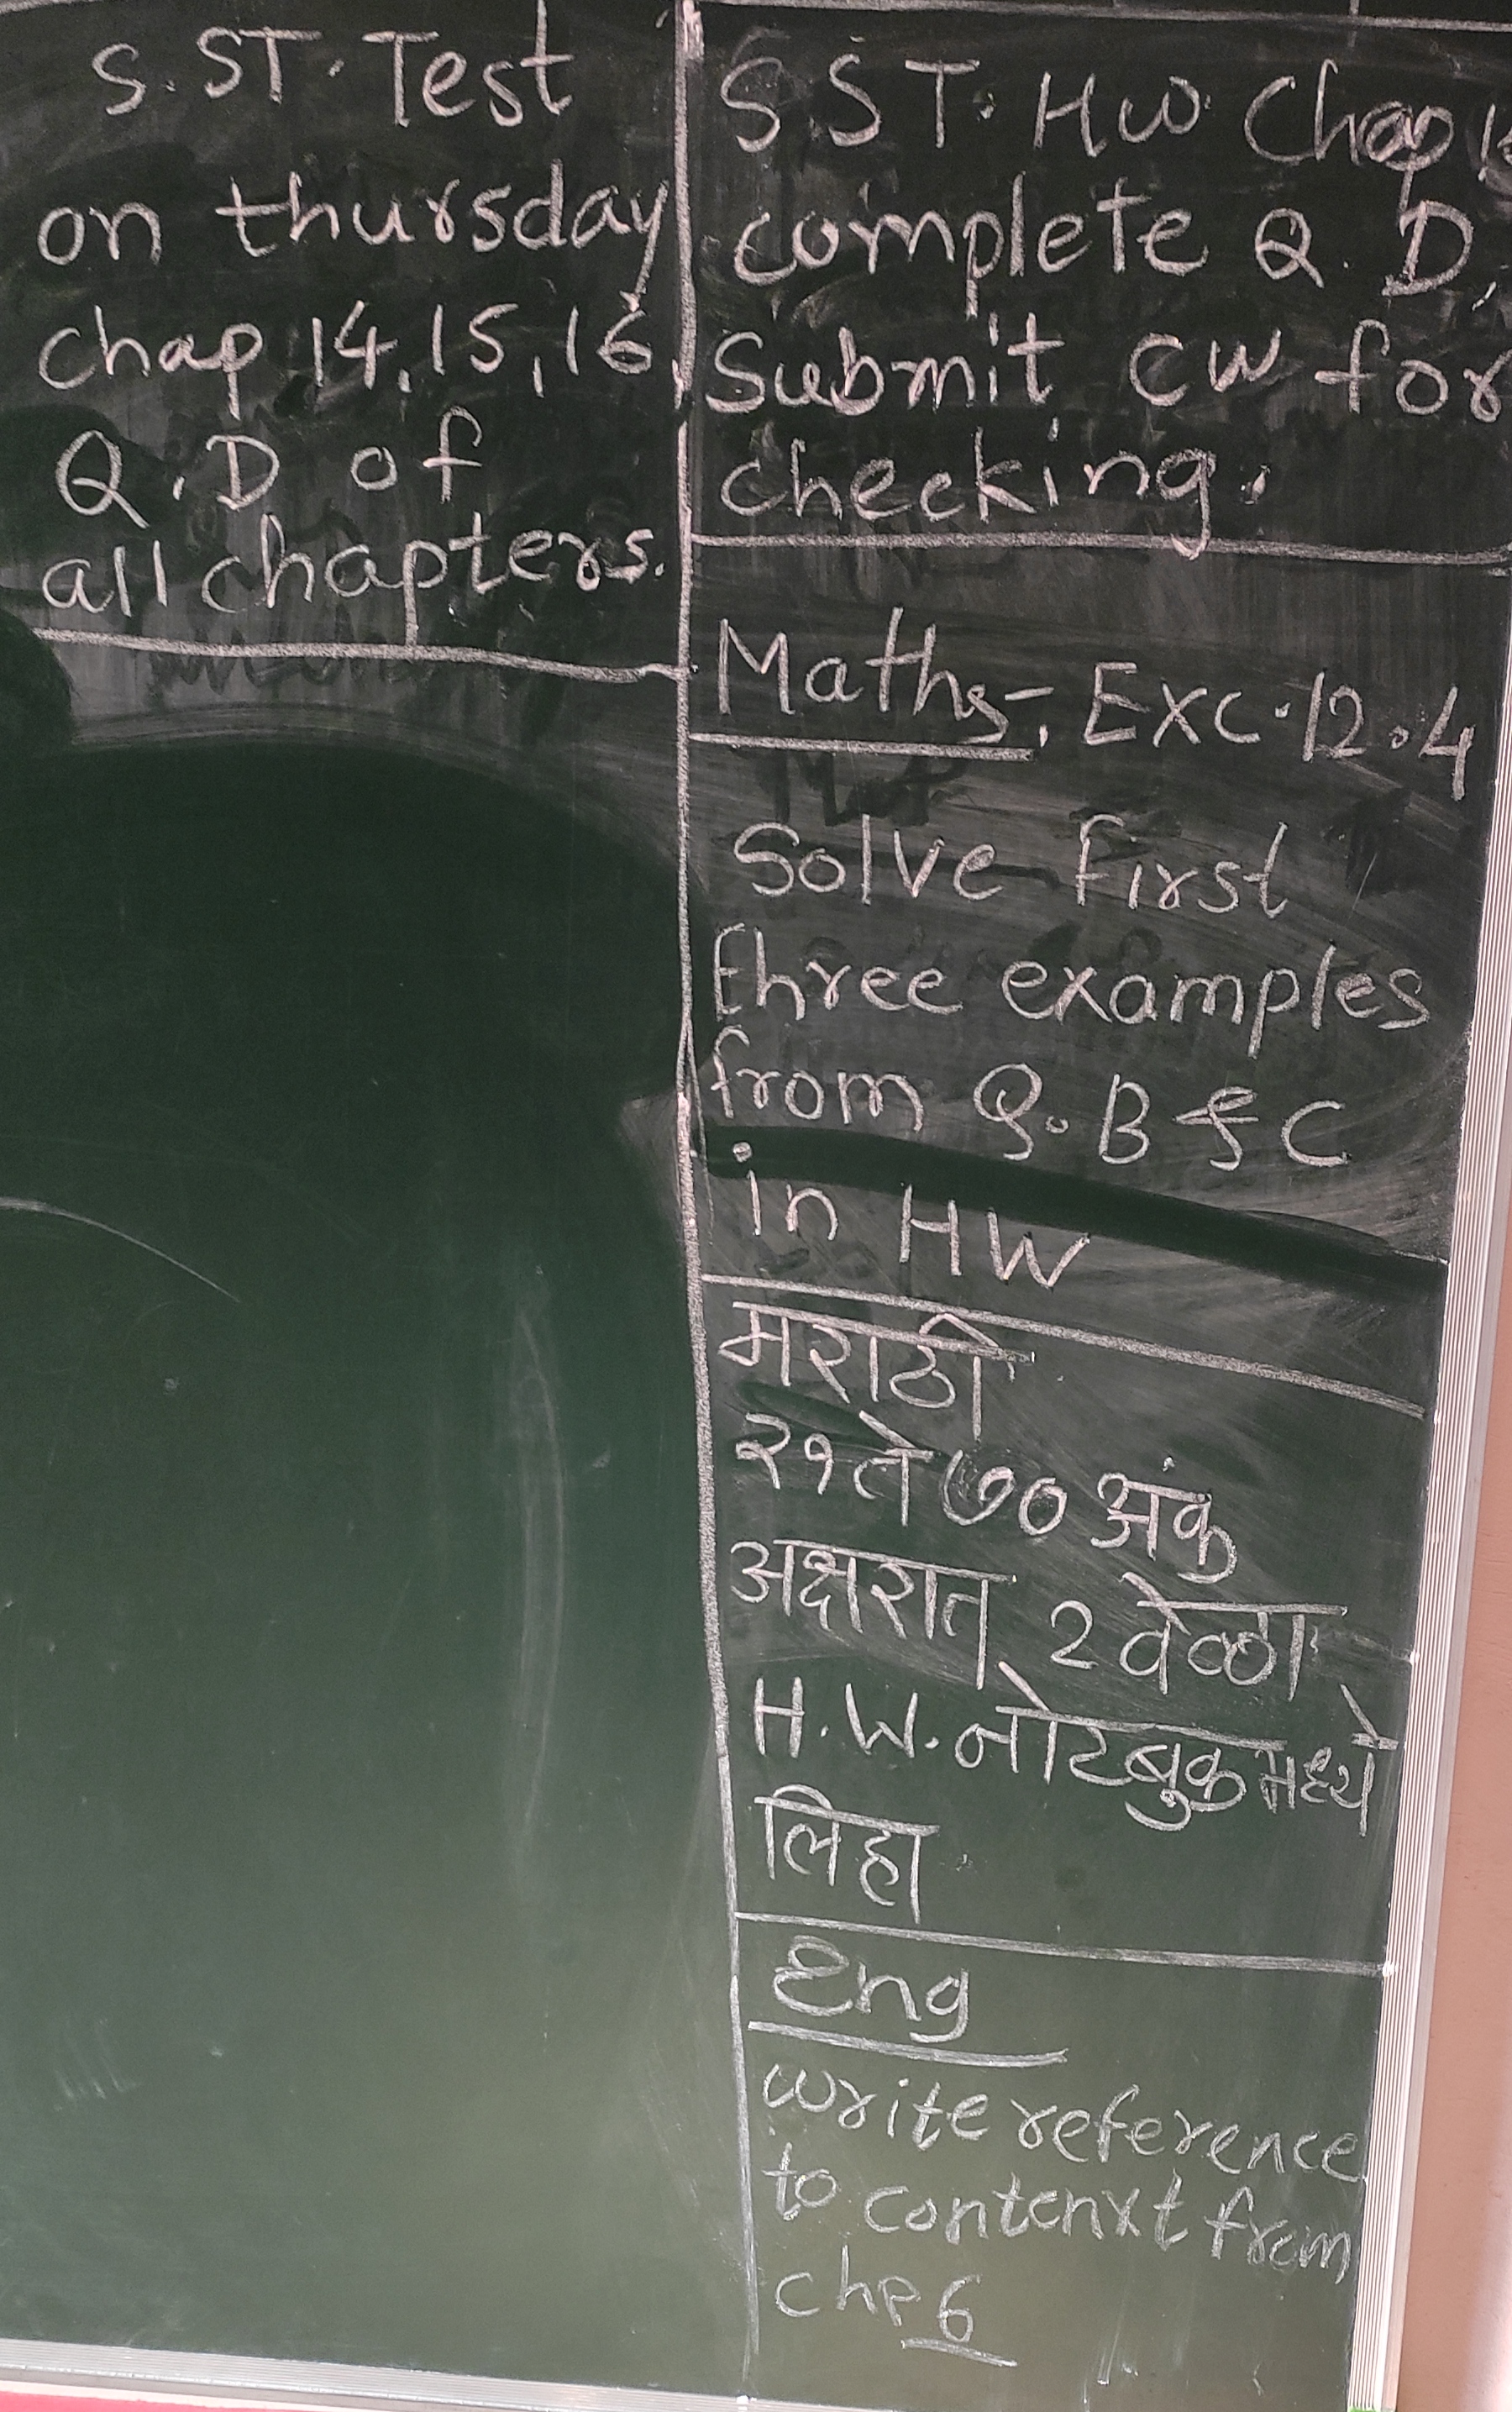 S.ST. Test
on thursday
chap 14,15,16,
Q.D of
all chapters.
S.S T. HW. Chap
complete Q. D,
Submit CW for
checking.
Maths-: Exc.12.4
Solve first
three examples
from Q. B & C
in HW
मराठी
२१ ते ७० अंक
अक्षरात 2 वेळा
H.W. नोटबुक मध्ये
लिहा
Eng
write reference
to contenxt from
chp 6